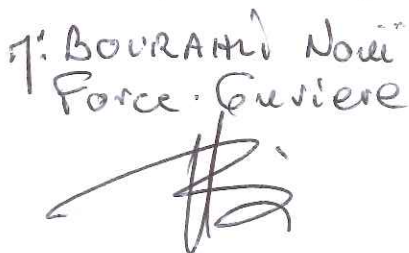 Mr BOURAHLI Nouï
Force-Ouvriere